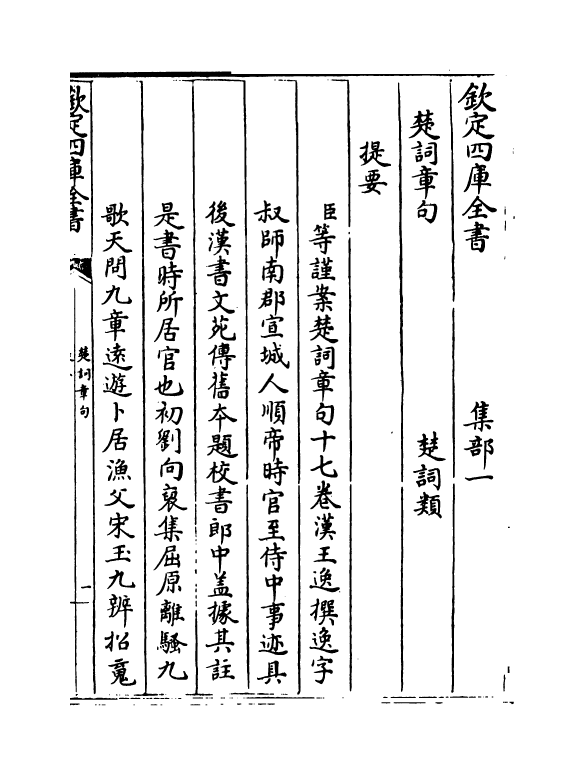 欽定四庫全書　集部一
楚詞章句　楚詞類
提要
臣等謹案楚詞章句十七卷漢王逸撰逸字
叔師南郡宣城人順帝時官至侍中事迹具
後漢書文苑傳舊本題校書郎中盖據其註
是書時所居官也初劉向裒集屈原離騷九
歌天問九章遠遊卜居漁父宋玉九辨招䰟
欽定四庫全書
楚詞章句
一